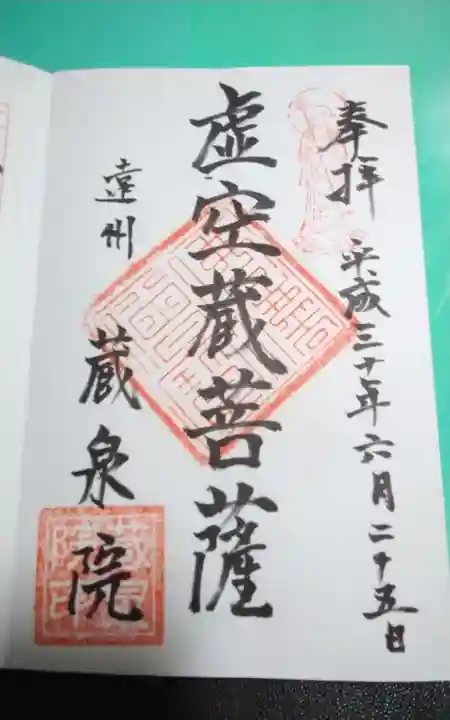 奉拝 平成三十年六月二十五日
虚空蔵菩薩
遠州 蔵泉院